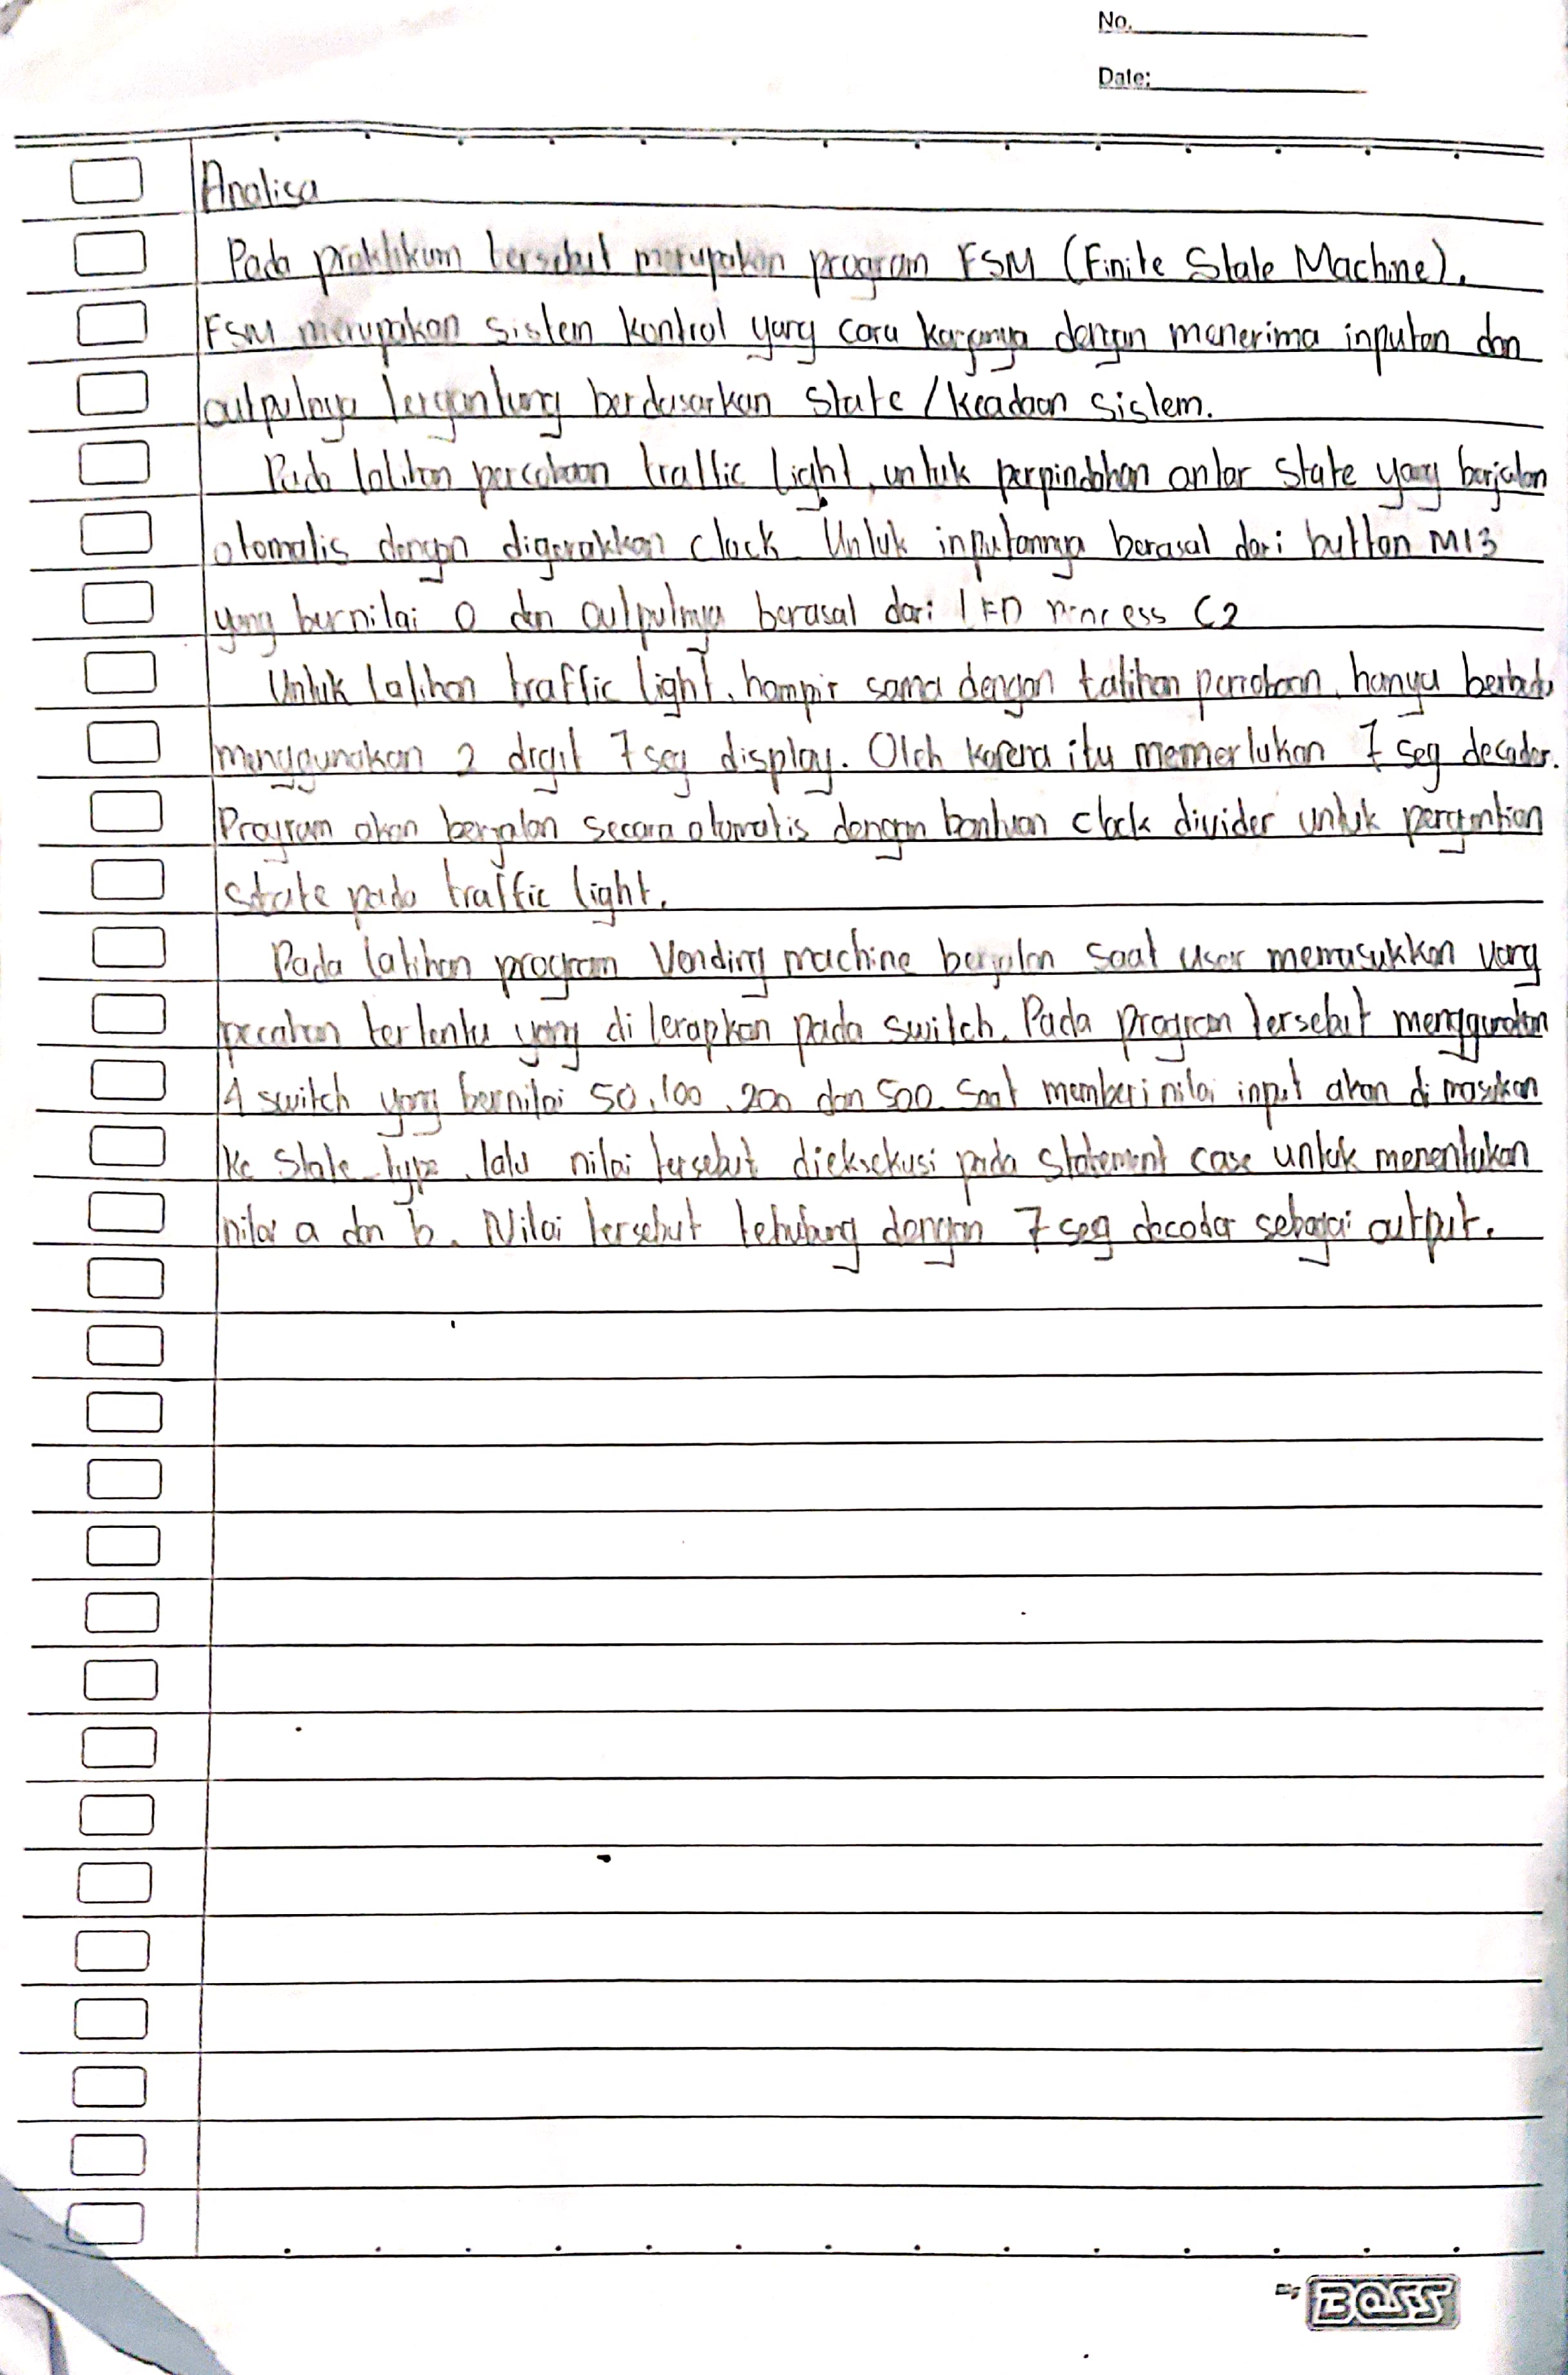 No.
Date:
Analisa
Pada praktikum tersebut merupakan program FSM (Finite State Machine).
FSM merupakan sistem kontrol yang cara kerjanya dengan menerima inputan dan
outputnya tergantung berdasarkan state/keadaan sistem.
Pada latihan percobaan traffic light, untuk perpindahan antar state yang berjalan
otomatis dengan digerakkan clock. Untuk inputannya berasal dari button M13
yang bernilai 0 dan outputnya berasal dari LED C2
Untuk latihan traffic light, hampir sama dengan latihan percobaan, hanya berbeda
menggunakan 2 digit 7 seg display. Oleh karena itu memerlukan 7 seg decoder.
Program akan berjalan secara otomatis dengan bantuan clock divider untuk pergantian
state pada traffic light.
Pada latihan program Vending machine berjalan saat user memasukkan uang
pecahan tertentu yang diterapkan pada switch. Pada program tersebut menggunakan
4 switch yang bernilai 50, 100, 200 dan 500. Saat memberi nilai input akan dimasukan
ke State type, lalu nilai tersebut dieksekusi pada statement case untuk menentukan
nilai a dan b. Nilai tersebut dengan 7 seg decoder sebagai output.
BOSS